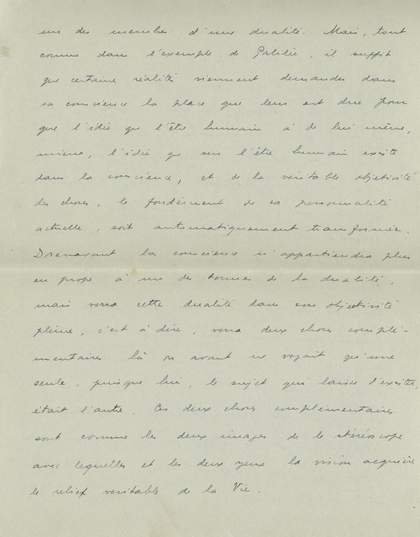 un des membres d'une dualité. Mais, tout
comme dans l'exemple de Galilée, il suffit
que certaine réalité viennent demander dans
sa conscience la place que leur est due pour
que l'idée que l'être humain a de lui même,
mieux, l'idée que sur l'être humain existe
dans la conscience, et de la véritable objectivité
des choses, le fondement de sa personnalité
actuelle, soit automatiquement transformée.
Dorénavant la conscience n'appartiendra plus
en propre à un des termes de la dualité,
mais verra cette dualité dans son objectivité
pleine, c'est à dire, verra deux choses complé-
mentaires là où avant on voyait qu'une
seule, puisque lui, le sujet qui
était l'autre. Ces deux choses complémentaires
sont comme les deux images de le stéréoscope
avec lesquelles et les deux yeux la vision acquière
le relief véritable de la Vie.